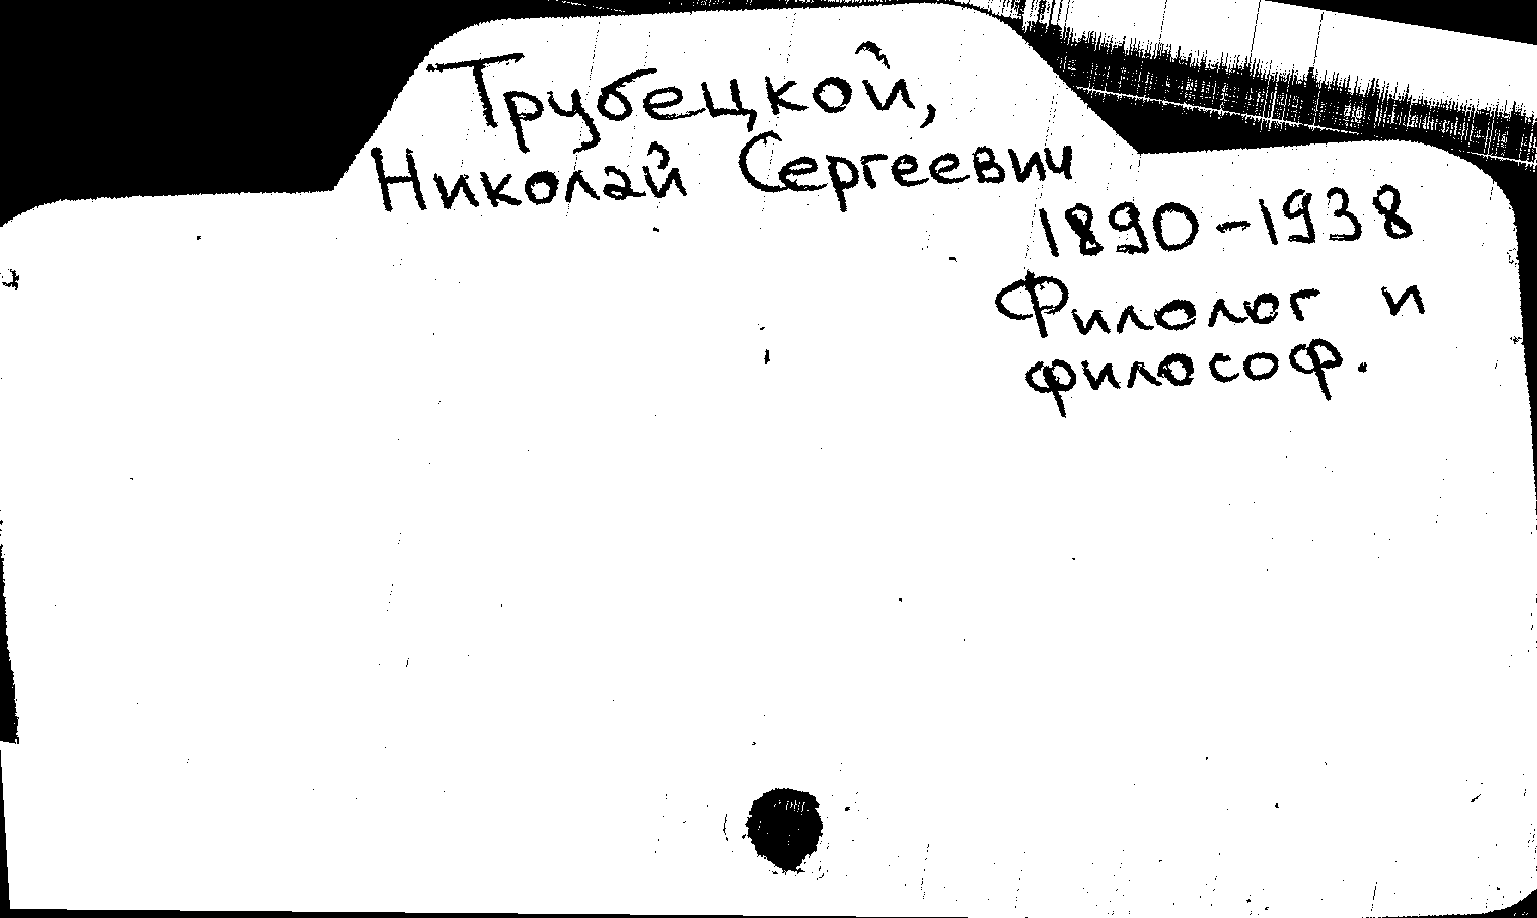 Трубецкой,
Николай Сергеевич
1890-1938
Филолог и
философ.